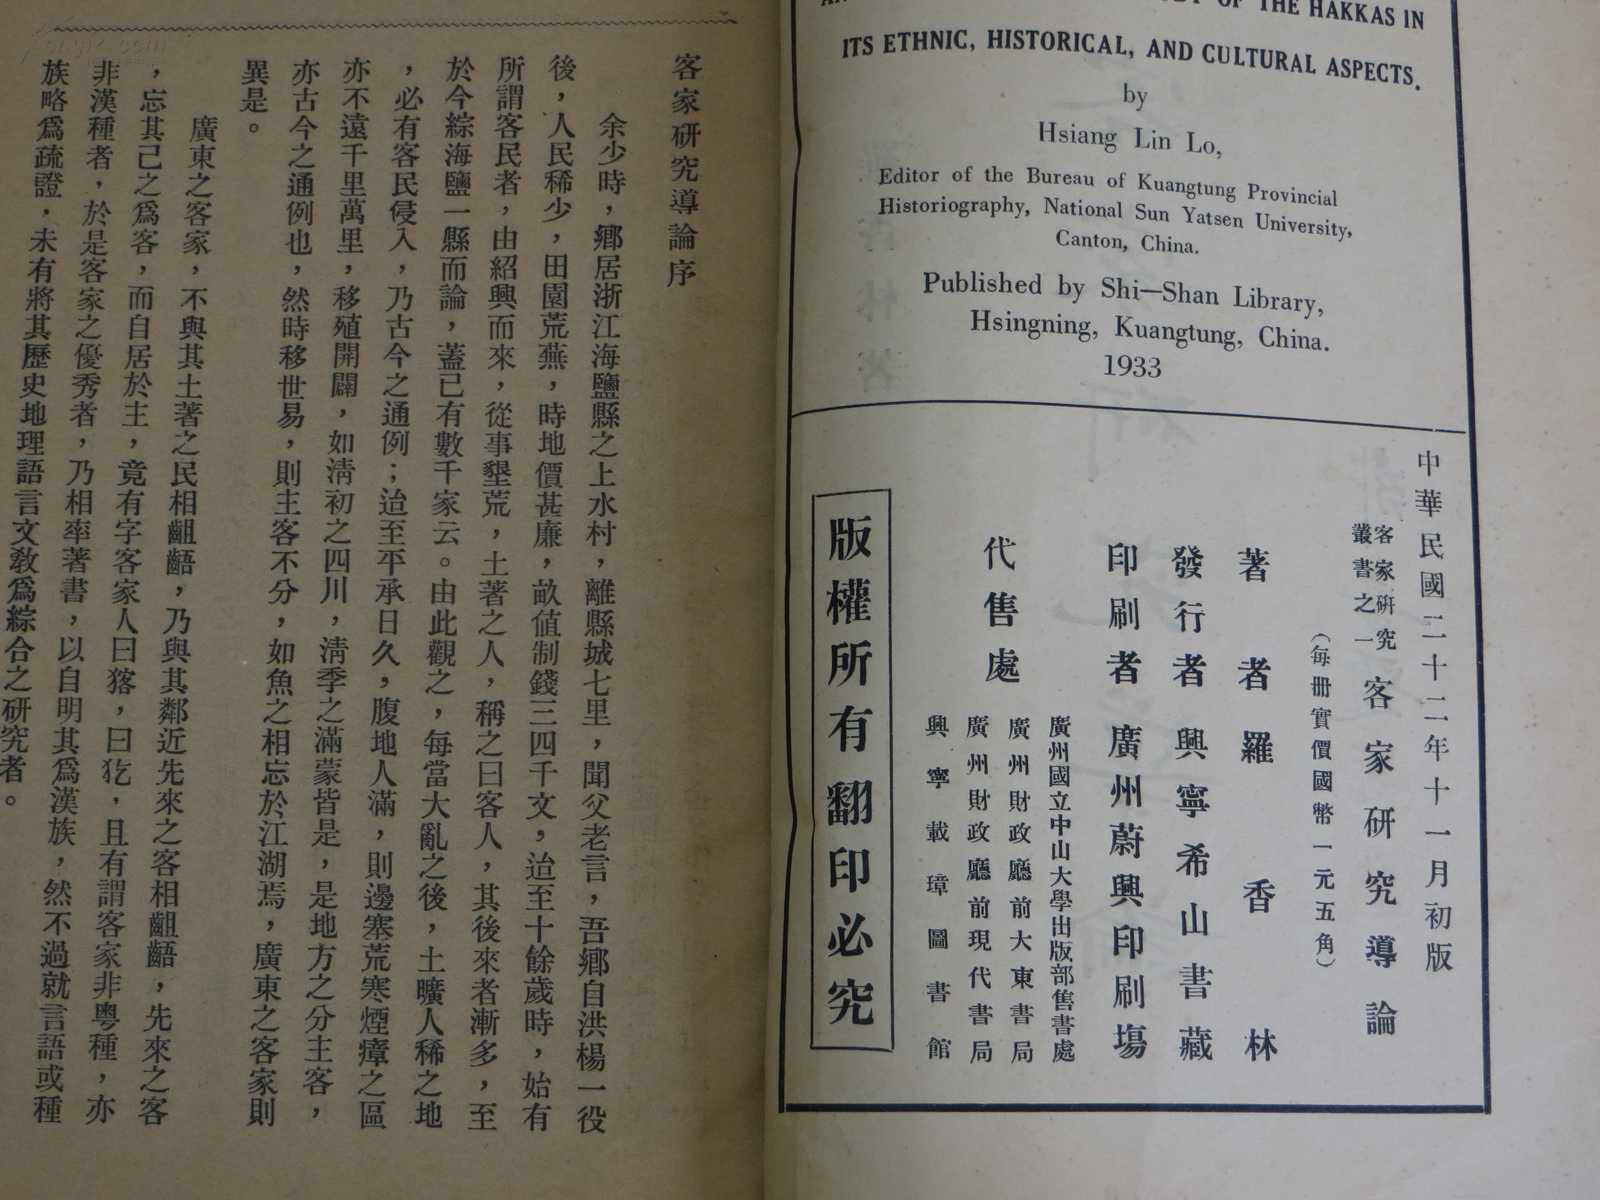 OF THE HAKKAS IN
ITS ETHNIC, HISTORICAL, AND CULTURAL ASPECTS.
by
Hsiang Lin Lo,
Editor of the Bureau of Kuangtung Provincial
Historiography, National Sun Yatsen University,
Canton, China.
Published by Shi—Shan Library,
Hsingning, Kuangtung, China.
1933
中華民國二十二年十一月初版
客家研究
叢書之一
客家研究導論
(每冊實價國幣一元五角)
著者羅香林
發行者興寧希山書藏
印刷者廣州蔚興印刷場
代售處
廣州國立中山大學出版部售書處
廣州財政廳前大東書局
廣州財政廳前現代書局
興寧載璋圖書館
版權所有翻印必究
客家研究導論序
余少時，鄉居浙江海鹽縣之上水村，離縣城七里，聞父老言，吾鄉自洪楊一役
後，人民稀少，田園荒蕪，時地價甚廉，畝值制錢三四千文，迨至十餘歲時，始有
所謂客民者，由紹興而來，從事墾荒，土著之人，稱之曰客人，其後來者漸多，至
於今綜海鹽一縣而論，蓋已有數千家云。由此觀之，每當大亂之後，土曠人稀之地
，必有客民侵入，乃古今之通例；迨至平承日久，腹地人滿，則邊塞荒寒煙瘴之區
亦不遠千里萬里，移殖開闢，如清初之四川，清季之滿蒙皆是，是地方之分主客，
亦古今之通例也，然時移世易，則主客不分，如魚之相忘於江湖焉，廣東之客家則
異是。
廣東之客家，不與其土著之民相齟齬，乃與其鄰近先來之客相齟齬，先來之客
，忘其己之爲客，而自居於主，竟有字客家人曰㹱，曰犵，且有謂客家非粵種，亦
非漢種者，於是客家之優秀者，乃相率著書，以自明其爲漢族，然不過就言語或種
族略爲疏證，未有將其歷史地理語言文教爲綜合之研究者。